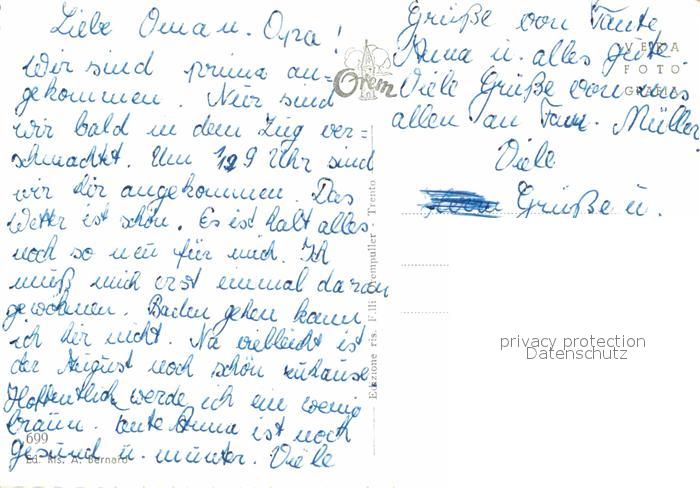 Liebe Oma u. Opa!
Wir sind prima an-
gekommen. Nur sind
wir bald in dem Zug ver-
schmachtet. Um 129 Uhr sind
wir hir angekommen. Das
Wetter ist schön. Es ist halt alles
noch so neu für mich. Ich
muß mich erst einmal daran
gewöhnen. Baden gehen kann
ich hir nicht. Na vielleicht ist
der August noch schön zuhause
Hoffentlich werde ich ein wenig
braun. Tante Anna ist noch
gesund u. munter. Viele
Grüße von Tante
Anna u. alles gute.
Viele Grüße von uns
allen an Fam. Müller.
Viele
Grüße u.
Orem
VERA
FOTO
GRAFIA
Edizione ris. F.lli Trempuller - Trento
privacy protection
Datenschutz
699
Ed. Ris. A. Bernard